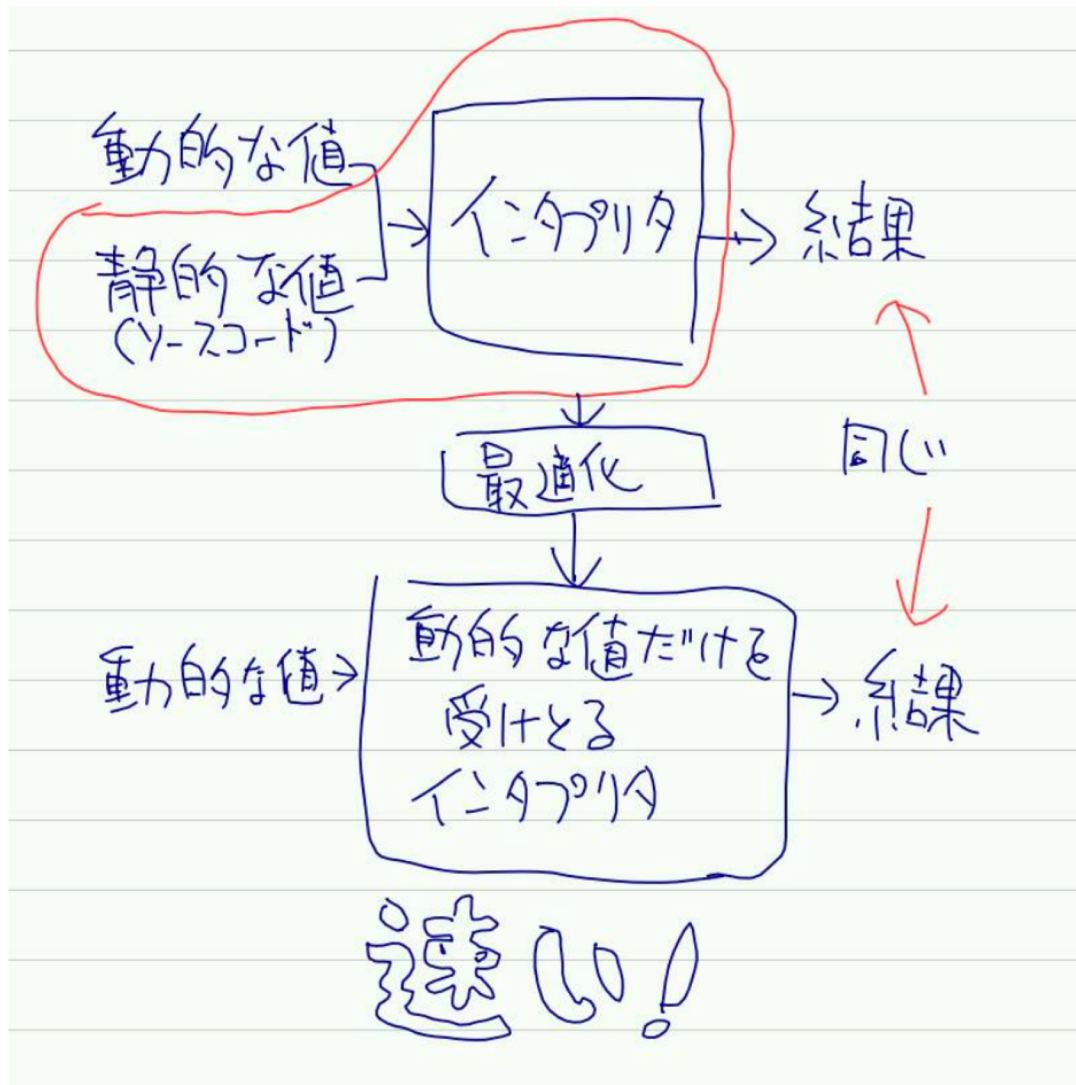 動的な値
静的な値
(ソースコード)
インタプリタ
結果
最適化
同じ
動的な値
動的な値だけを
受けとる
インタプリタ
結果
速い!